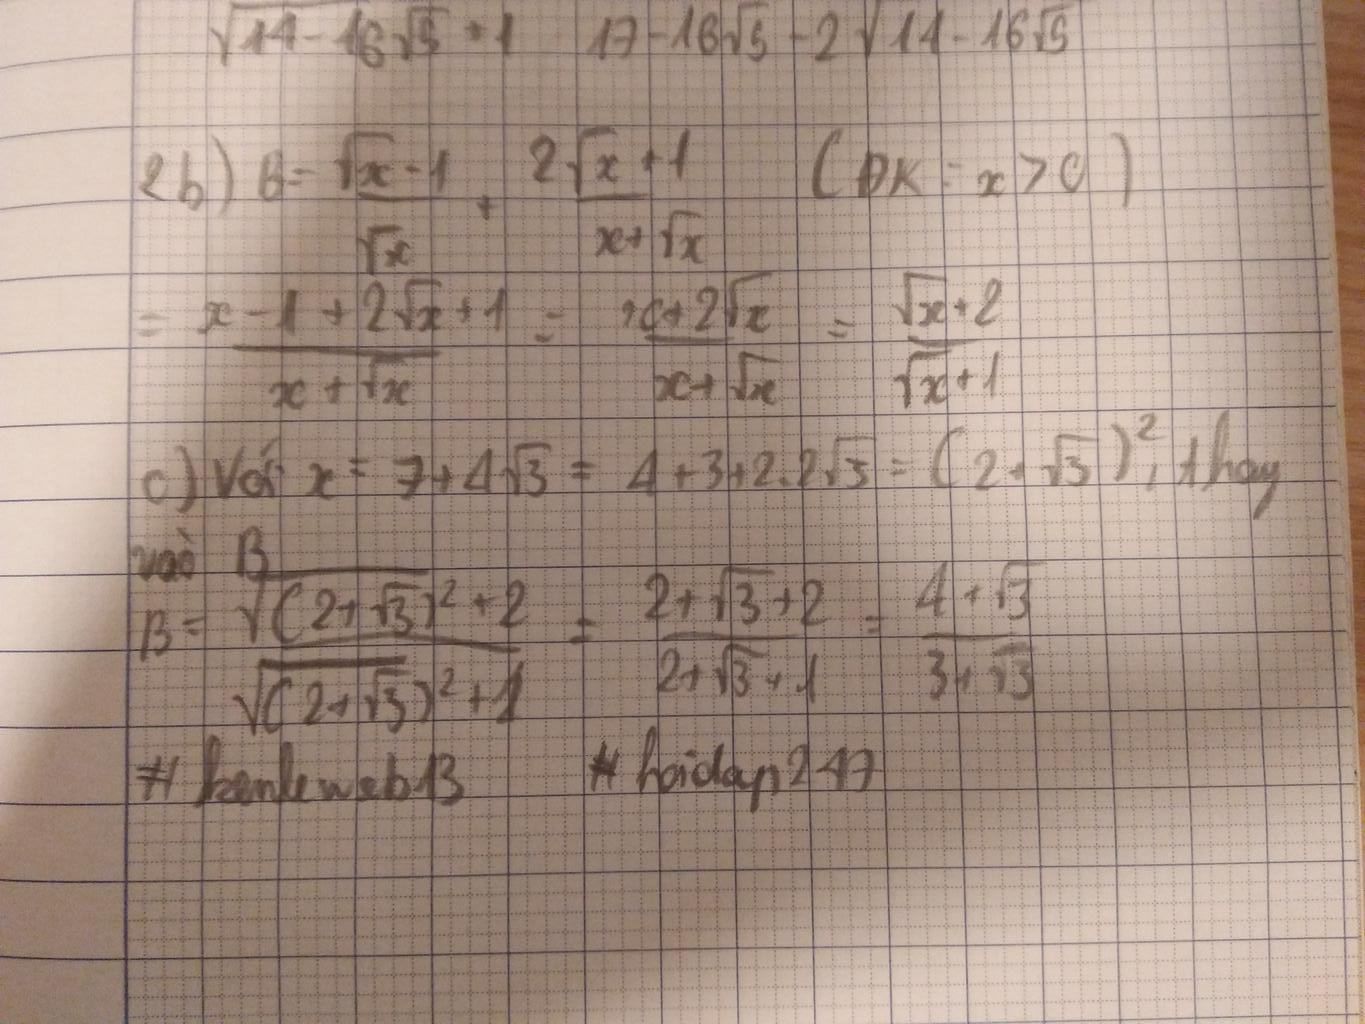 √14-16√5 + 1 17-16√5-2√14-16√5
2b) B = (√x - 1)/√x + (2√x + 1)/(x+√x) (ĐK: x > 0)
= (x - 1 + 2√x + 1)/(x + √x) = (x + 2√x)/(x+√x) = (√x + 2)/(√x + 1)
c) Với x = 7+4√3 = 4+3+2.2√3 = (2+√3)², thay
vào B
B = (√(2+√3)² + 2)/(√(2+√3)² + 1) = (2+√3+2)/(2+√3+1) = (4+√3)/(3+√3)
#hoidap247